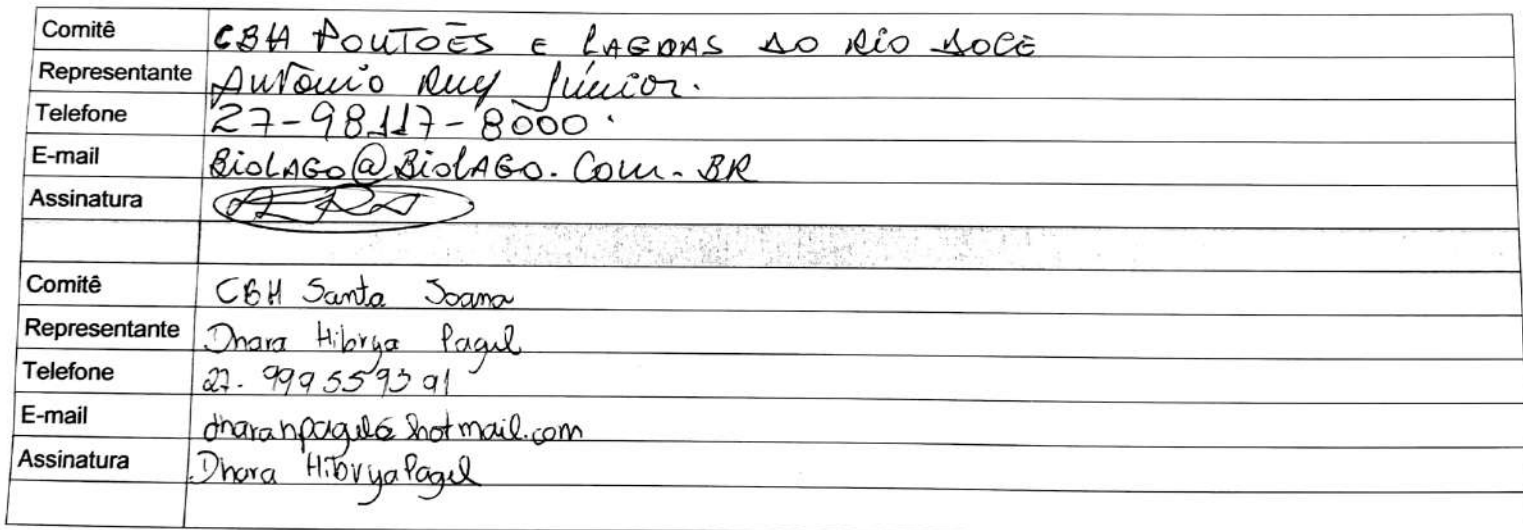 Comitê CBH PONTÕES E LAGOAS DO RIO DOCE
Representante Antônio Ruy Júnior.
Telefone 27-98117-8000.
E-mail BIOLAGO@BIOLAGO.COM.BR
Assinatura
Comitê CBH Santa Joana
Representante Dhara Hibrya Pagel
Telefone 27. 999559391
E-mail dharahpagel@hotmail.com
Assinatura Dhara Hibrya Pagel